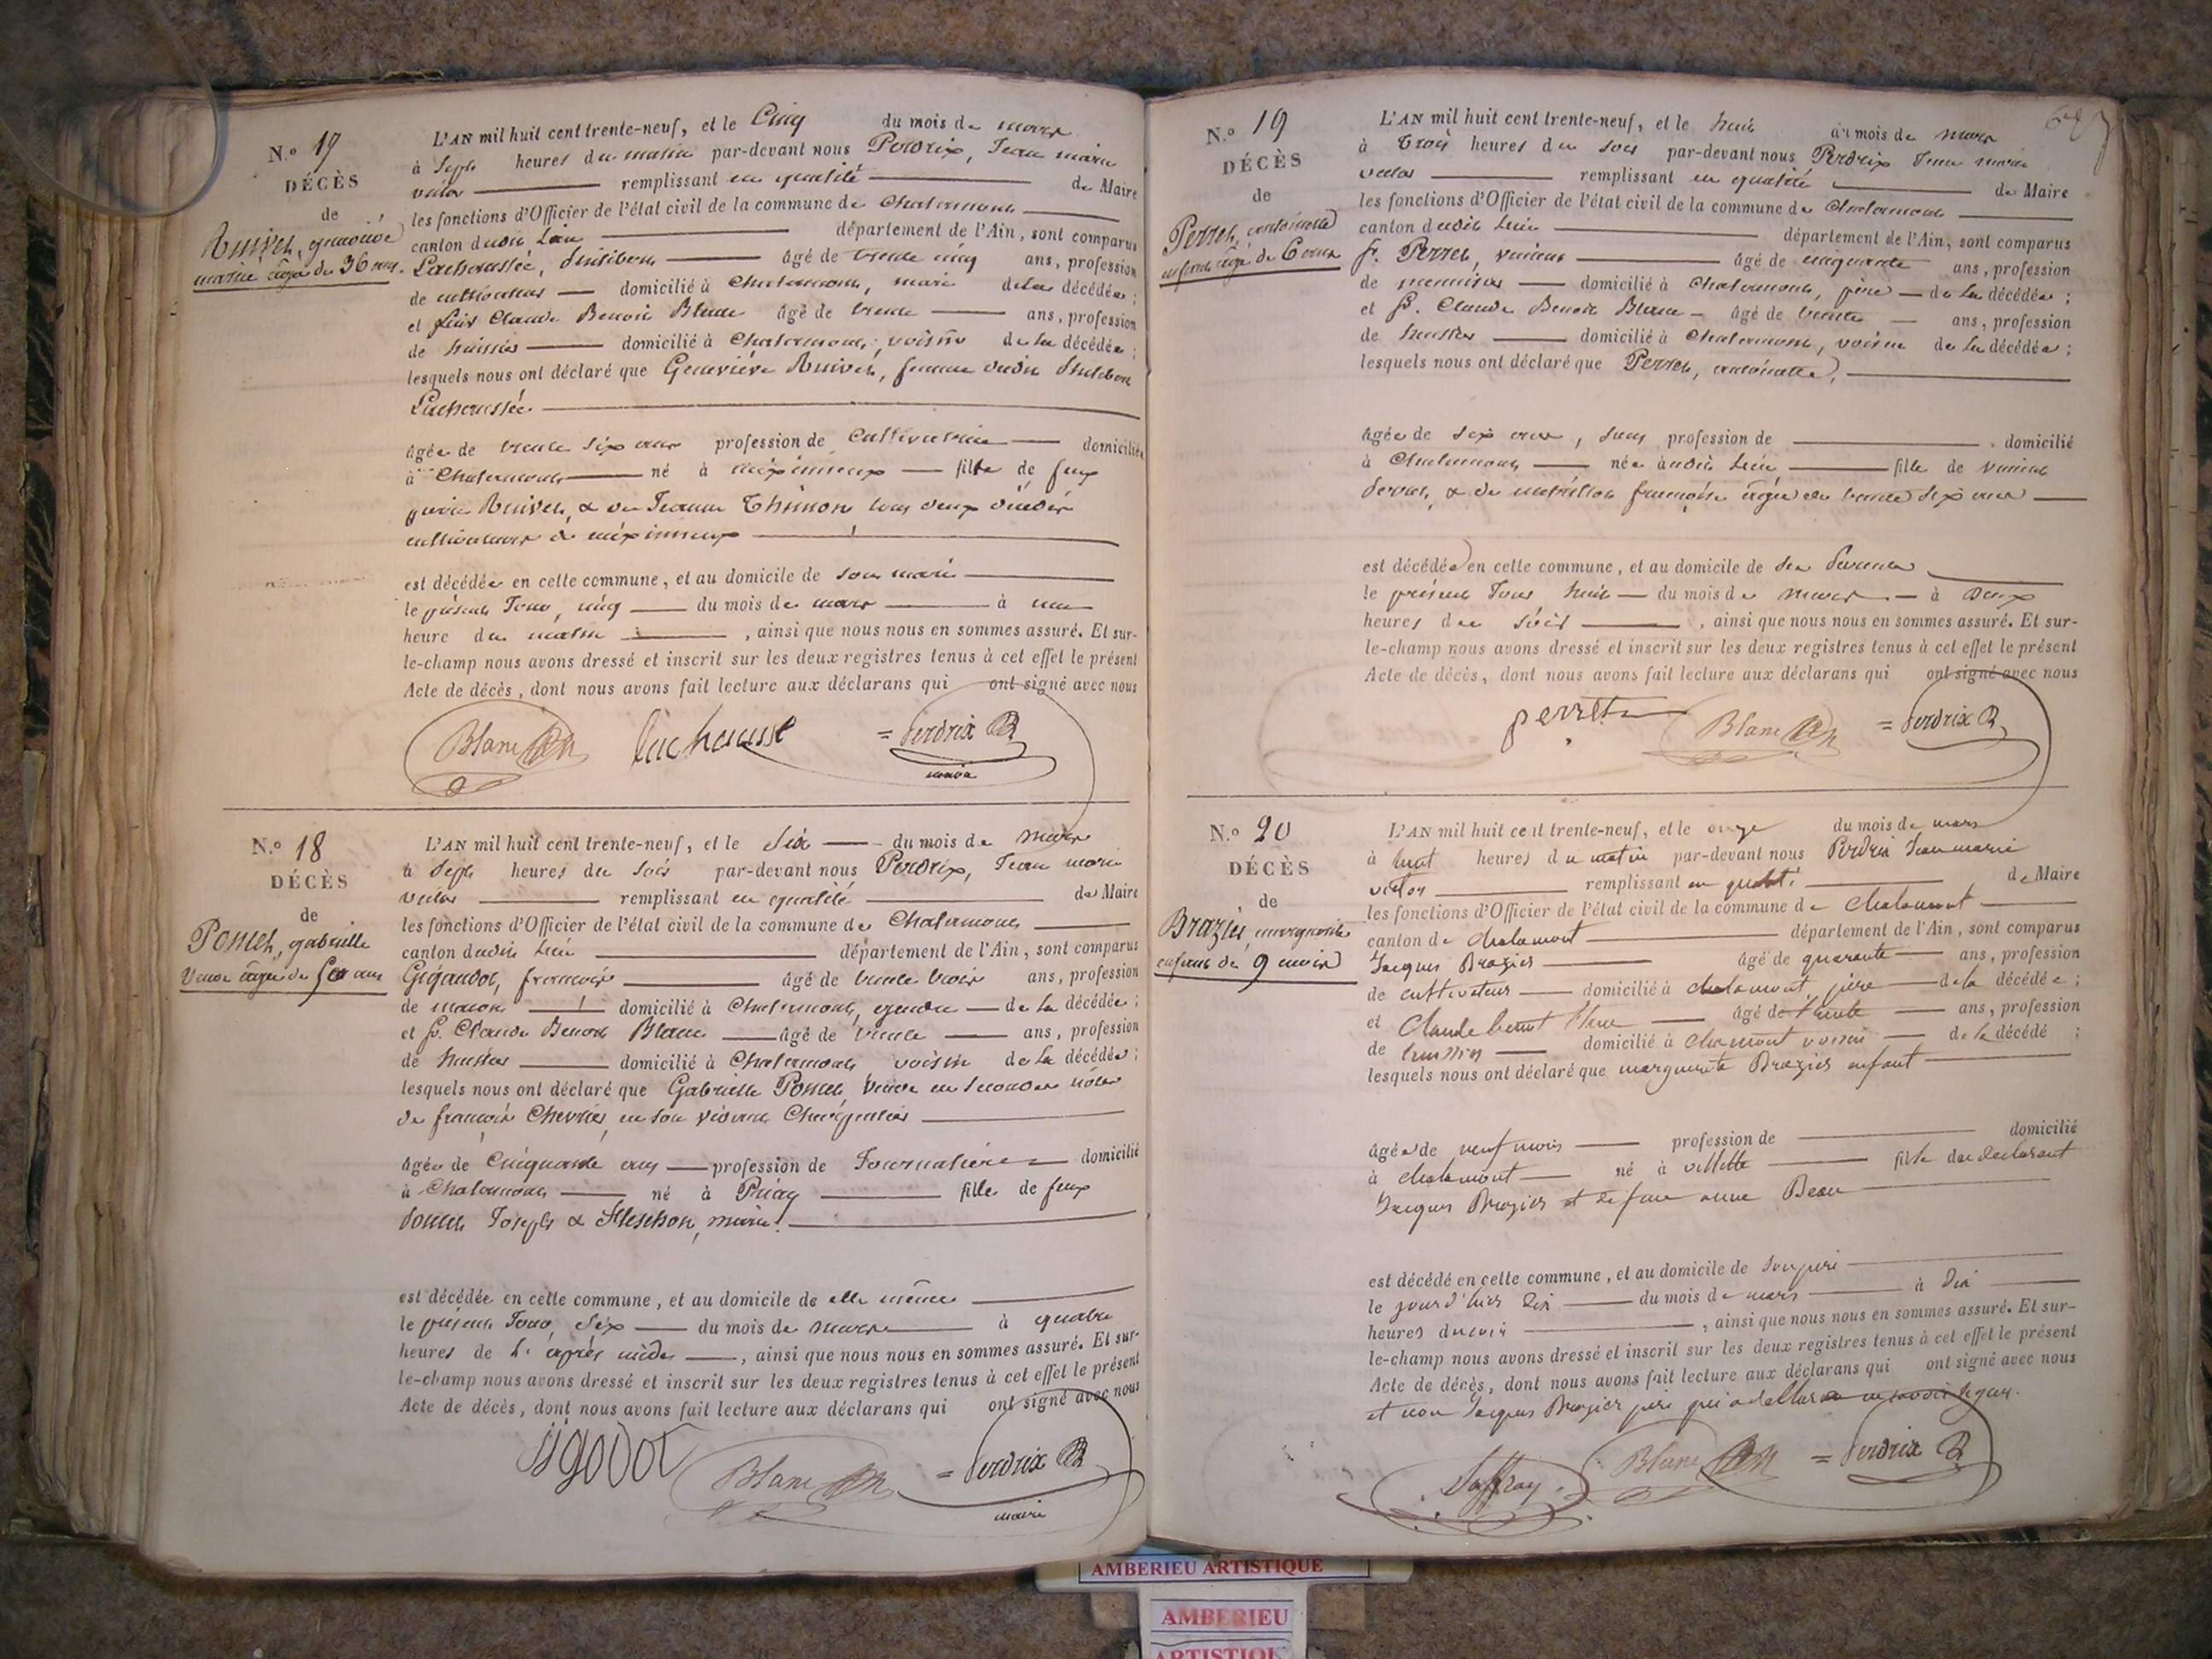 N.o 17
DÉCÈS
de
mariée âgée de 36 ans.
L'AN mil huit cent trente-neuf, et le Cinq du mois de mars
à Sept heures du matin par-devant nous Perdrix, Jean marie
victor remplissant en qualité de Maire
les fonctions d'Officier de l'état civil de la commune de Chalamont
canton dudit Lieu département de l'Ain, sont comparus
Lachaussée, âgé de trente cinq ans, profession
de cultivateur domicilié à Chalamont, mari de la décédée ;
et Sieur Claude Benoit Blanc âgé de trente ans, profession
de huissier domicilié à Chalamont, voisin de la décédée ;
lesquels nous ont déclaré que Geneviève femme dudit
Lachaussée
âgée de trente six ans profession de Cultivatrice domicilié
à Chalamont né à meximieux fille de feux
pierre & de Jeanne Thimon tous deux décédés
cultivateurs à meximieux
est décédée en cette commune, et au domicile de son mari
le présent Jour, cinq du mois de mars à une
heure du matin , ainsi que nous nous en sommes assuré. Et sur-
le-champ nous avons dressé et inscrit sur les deux registres tenus à cet effet le présent
Acte de décès, dont nous avons fait lecture aux déclarans qui ont signé avec nous
Blanc lachaussé = Perdrix
maire
N.o 18
DÉCÈS
de
Poncet, gabrielle
Veuve âgée de 50 ans
L'AN mil huit cent trente-neuf, et le Six du mois de mars
à Sept heures du Soir par-devant nous Perdrix, Jean marie
victor remplissant en qualité de Maire
les fonctions d'Officier de l'état civil de la commune de Chalamont
canton dudit Lieu département de l'Ain, sont comparus
Gigaudot, françois âgé de trente trois ans, profession
de macon domicilié à Chalamont, gendre de la décédée ;
et Sr. Claude Benoit Blanc âgé de trente ans, profession
de huissier domicilié à Chalamont voisin de la décédée ;
lesquels nous ont déclaré que Gabrielle Poncet, Veuve en secondes nôces
de françois Chevrier, en son vivant Charpentier
âgée de Cinquante ans profession de Journalière domicilié
à Chalamont né à Priay fille de feux
Poncet Joseph &
est décédée en cette commune, et au domicile de elle même
le présent Jour, Six du mois de mars à quatre
heures de l'après midi , ainsi que nous nous en sommes assuré. Et sur-
le-champ nous avons dressé et inscrit sur les deux registres tenus à cet effet le présent
Acte de décès, dont nous avons fait lecture aux déclarans qui ont signé avec nous
Blanc = Perdrix
maire
N.o 19
DÉCÈS
de
Perret, antoinette
enfant âgé de 6 ans
L'AN mil huit cent trente-neuf, et le huit du mois de mars
à Trois heures du soir par-devant nous Perdrix Jean marie
victor remplissant en qualité de Maire
les fonctions d'Officier de l'état civil de la commune de Chalamont
canton dudit Lieu département de l'Ain, sont comparus
Sr. Perret, vincent âgé de cinquante ans, profession
de menuisier domicilié à Chalamont, père de la décédée ;
et Sr. Claude Benoit Blanc âgé de trente ans, profession
de huissier domicilié à Chalamont, voisin de la décédée ;
lesquels nous ont déclaré que Perret, antoinette,
âgée de six ans, sans profession de domicilié
à Chalamont née audit Lieu fille de vincent
Perret, & de françoise âgée de trente six ans
est décédée en cette commune, et au domicile de ses Parents
le présent Jour huit du mois de mars à Deux
heures du soir , ainsi que nous nous en sommes assuré. Et sur-
le-champ nous avons dressé et inscrit sur les deux registres tenus à cet effet le présent
Acte de décès, dont nous avons fait lecture aux déclarans qui ont signé avec nous
perret Blanc = Perdrix
N.o 20
DÉCÈS
de
Brazier, marguerite
enfant de 9 mois
L'AN mil huit cent trente-neuf, et le onze du mois de mars
à huit heures du matin par-devant nous Perdrix Jean marie
victor remplissant en qualité de Maire
les fonctions d'Officier de l'état civil de la commune de Chalamont
canton de chalamont département de l'Ain, sont comparus
Jacques Brazier âgé de quarante ans, profession
de cultivateur domicilié à chalamont, père de la décédée ;
et Claude benoit blanc âgé de trente ans, profession
de huissier domicilié à chamont voisin de la décédé ;
lesquels nous ont déclaré que marguerite Brazier enfant
âgée de neuf mois profession de domicilié
à chalamont né à villette fille du declarant
Jacques Brazier et de feue anne Beau
est décédé en cette commune, et au domicile de son père
le jour d'hier Dix du mois de mars à Dix
heures du soir , ainsi que nous nous en sommes assuré. Et sur-
le-champ nous avons dressé et inscrit sur les deux registres tenus à cet effet le présent
Acte de décès, dont nous avons fait lecture aux déclarans qui ont signé avec nous
et non Jacques Brazier père qui a déclaré ne savoir signer.
Blanc = Perdrix
AMBERIEU ARTISTIQUE
AMBERIEU